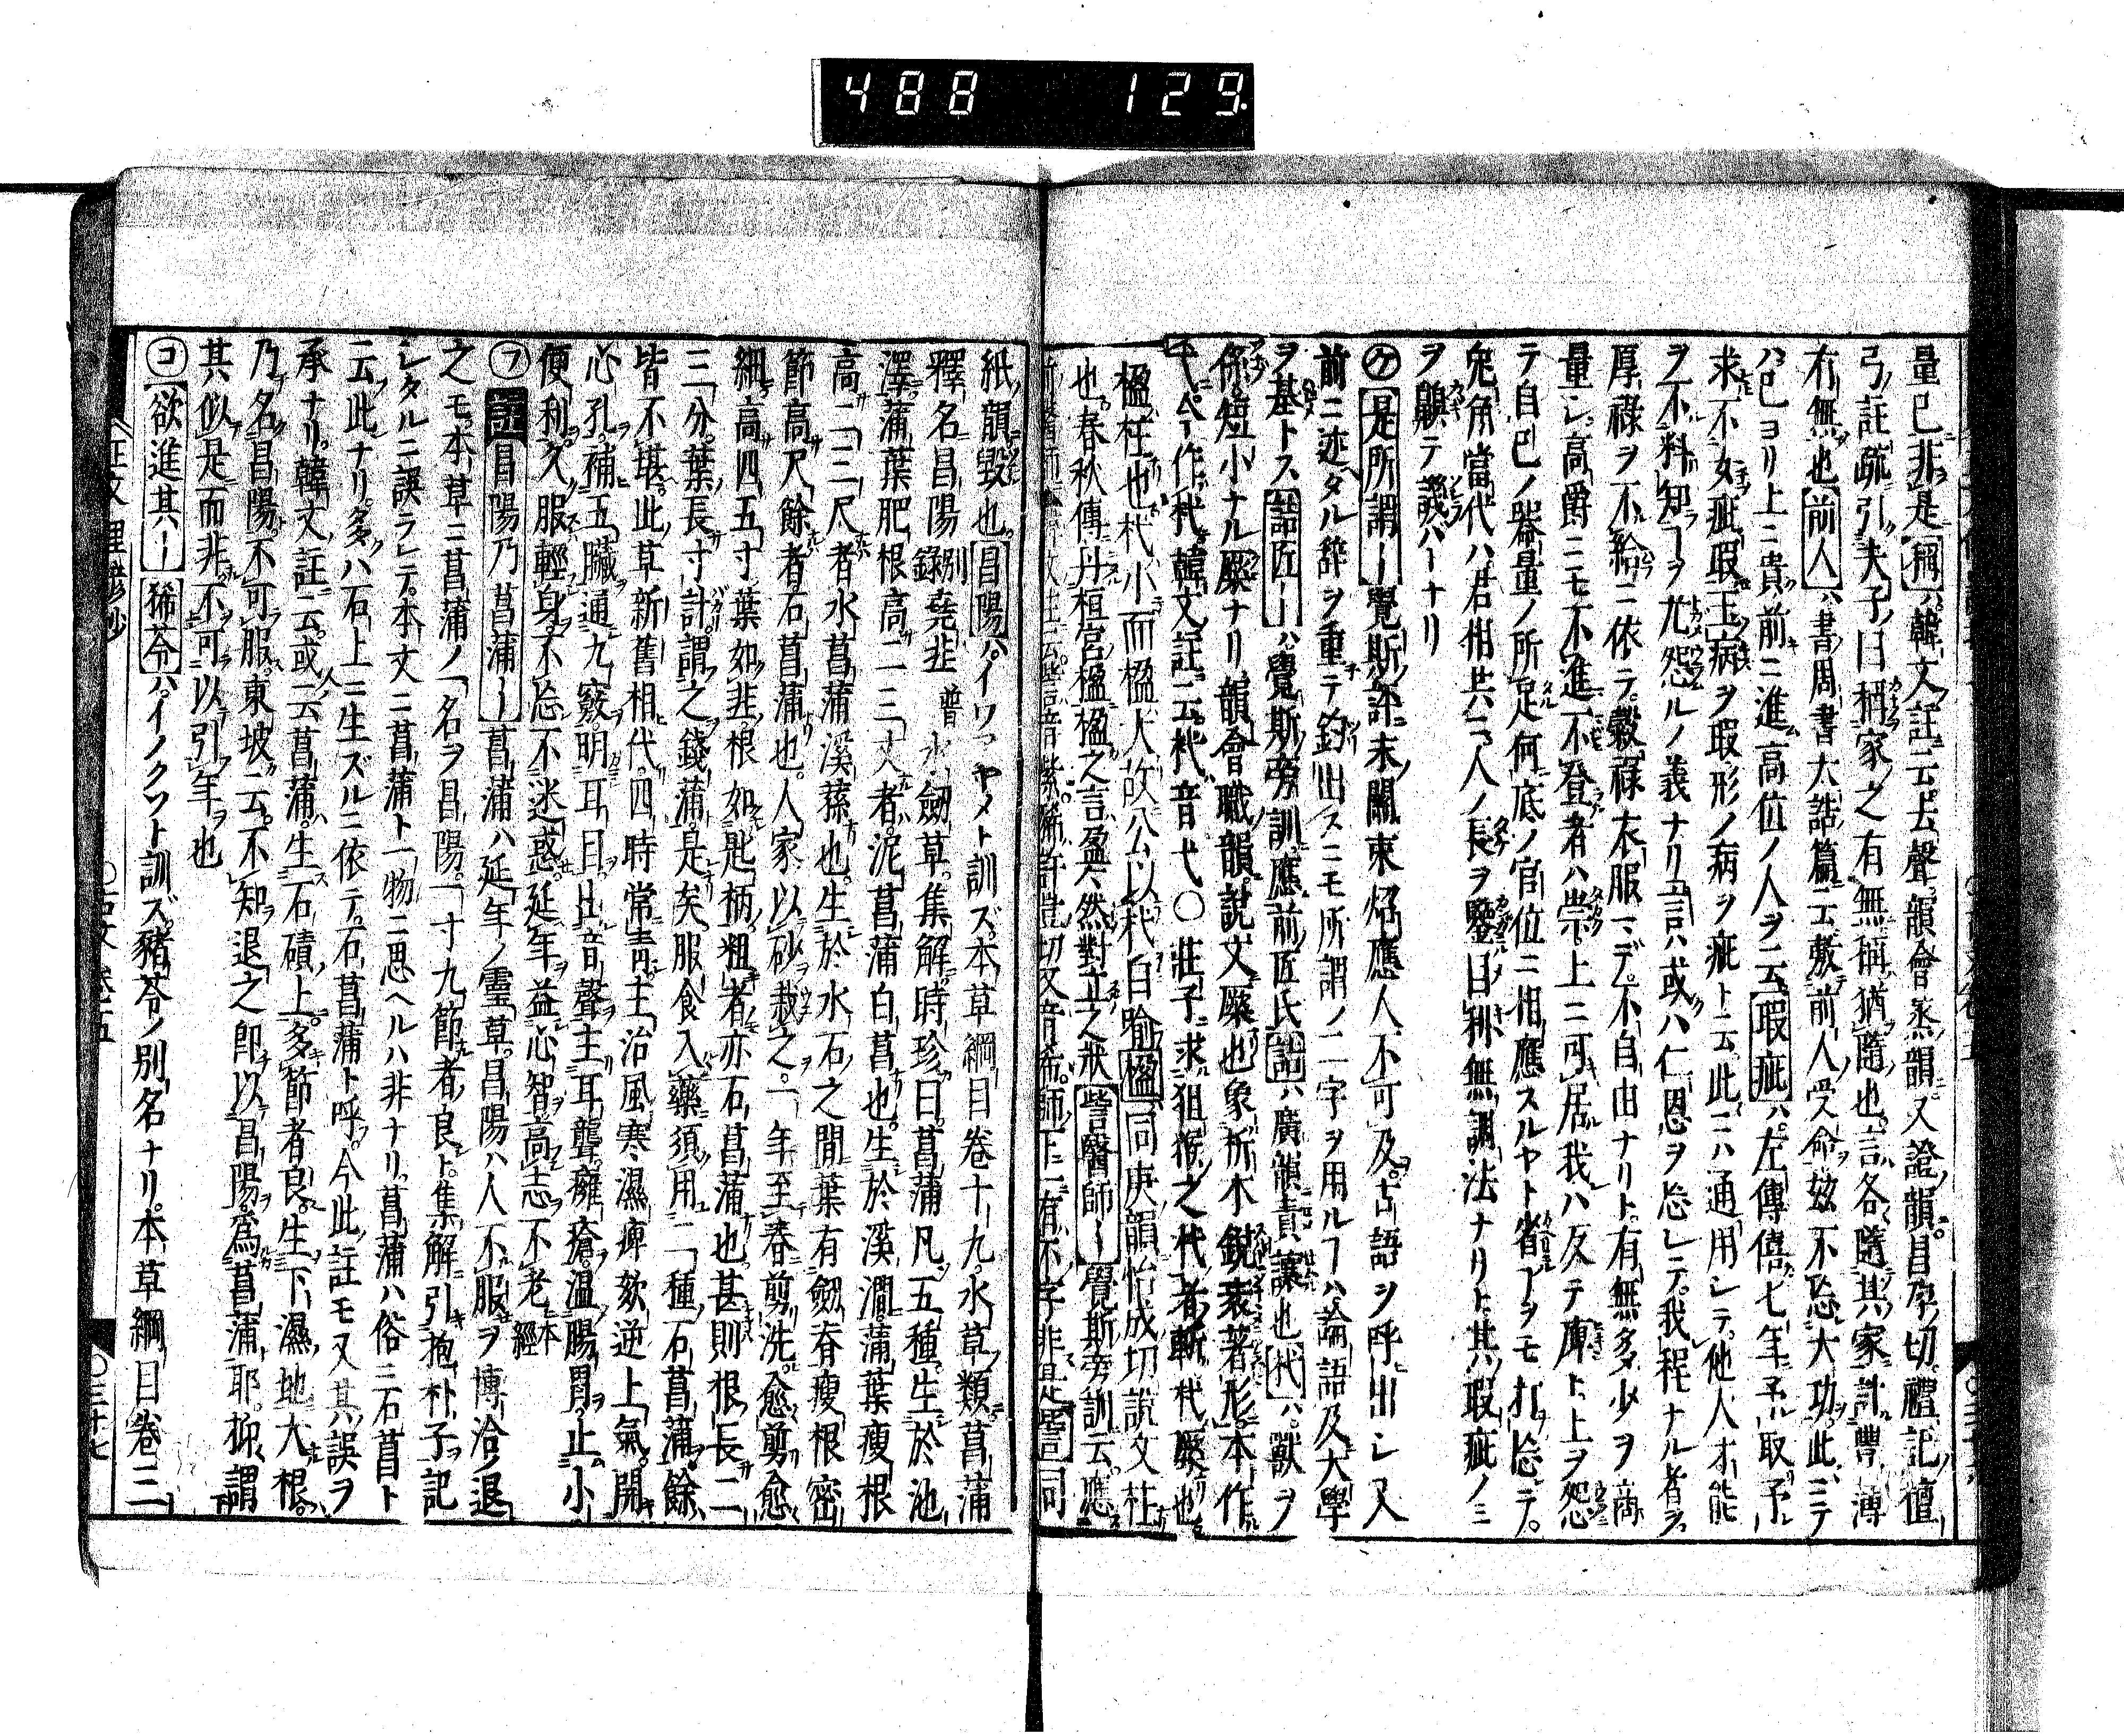 488 129
量已非是稱ハ韓文註云去聲韻會蒸韻又證韻昌孕切禮記檀
弓註疏引夫子曰稱家之有無稱猶隨也言各隨其家計豐薄
有無也前人ハ書周書大誥篇ニ云敷前人受命玆不忘大功此ニテ
ハ已ヨリ上ニ貴前ニ進ム高位ノ人ヲ云瑕疵ハ左傳僖七年予取予
求不女疵瑕玉病ヲ瑕形ノ病ヲ疵ト云此ニハ通用シテ他人才能
ヲ不料知ヿヲ尤怨ルノ義ナリ言ハ或ハ仁恩ヲ忘レテ我程ナル者ヲ
厚祿ヲ不給ニ依テ穀祿衣服マデ不自由ナリト有無多少ヲ商
量シ高爵ニモ不進不登者ハ崇上ニ可居我ハ反テ庳ト上ヲ怨
テ自已ノ器量ノ所足何底ノ官位ニ相應スルヤト省ヿヲモ打忘テ
兔角當代ハ君相共ニ人ノ長ヲ鑒日利無調法ナリト其瑕疵ノミ
ヲ顯テ議ハーナリ
ケ是所謂ー覺斯評末關束焰應人不可及古語ヲ呼出シ又
前ニ述タル辭ヲ重テ鈎出スニモ所謂ノ二字ヲ用ルヿハ論語及大學
ヲ基トス詰匠ーハ覺斯旁訓應前匠氏詰ハ廣韻責讓也杙ハ獸ヲ
係短小ナル橜ナリ韻會職韻說文橜也象析木銳衺著形本作
弋今作杙韓文註云杙音弋〇莊子求狙猴之杙者斬杙橜也
楹柱也杙小而楹大故公以杙自喻楹同庚韻怡成切說文柱
也春秋傳丹桓宮楹楹之言盈盈然對立之狀訾醫師ー覺斯旁訓云應
紙韻毀也昌陽ハイワヤメト訓ズ本草綱目卷十九水草類菖蒲
釋名昌陽別錄堯韭 水劒草集解時珍曰菖蒲凡五種生於池
澤蒲葉肥根高二三丈者泥菖蒲白菖也生於溪澗蒲葉瘦根
高二三尺者水菖蒲溪蓀也生於水石之間葉有劒脊瘦根密
節高尺餘者石菖蒲也人家以砂栽之一年至春剪洗愈剪愈
細高四五寸葉如韭根如匙柄粗者亦石菖蒲也甚則根長二
三分葉長寸計謂之錢蒲是矣服食入藥須用二種石菖蒲餘
皆不堪此草新舊相代四時常靑主治風寒濕痺欬逆上氣開
心孔補五臟通九竅明耳目出音聲主耳聾癰瘡溫腸胃止小
便利久服輕身不忘不迷惑延年益心智高志不老本經
フ評昌陽乃菖蒲ー菖蒲ハ延年ノ靈草昌陽ハ人不服ヲ博洽ノ退
之モ本草ニ菖蒲ノ一名ヲ昌陽一寸九節者良ト集解引抱朴子ヲ記
シタルニ誤ラレテ本文ニ菖蒲ト一物ニ思ヘルハ非ナリ菖蒲ハ俗ニ石菖ト
云此ナリ多ハ石上ニ生ズルニ依テ石菖蒲ト呼フ今此註モ又其誤ヲ
承ナリ韓文註云或人云菖蒲生石磧上多節者良生下濕地大根
乃名昌陽不可服東坡云不知退之即以昌陽爲菖蒲耶抑謂
其似是而非不可以引年也
コ欲進其ー豨苓ハイノクソト訓ズ豬苓ノ別名ナリ本草綱目卷三